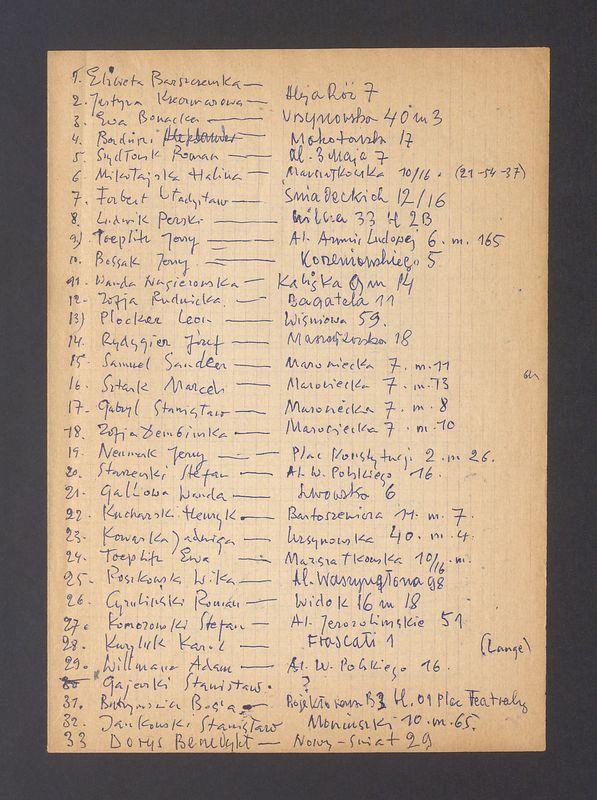 1. Elżbieta Barszczewska —
2. Justyna Kreczmarowa — Aleja Róż 7
3. Ewa Bonacka — Ursynowska 40 m 3
4. Bardini Aleksander — Mokotowska 17
5. Szydłowski Roman — Al. 3 Maja 7
6. Mikołajska Halina — Marszałkowska 10/16. (21-54-37)
7. Forbert Władysław — Śniadeckich 12/16
8. Ludwik Perski — Wilcza 33 kl 2B
9.) Toeplitz Jerzy — Al. Armii Ludowej 6. m. 165
10. Bossak Jerzy — Korzeniowskiego 5
11. Wanda Nagierowska — Kaliska 9 m 14
12. Zofja Rudnicka. — Bagatela 11
13) Plocker Leon — Wiśniowa 59.
14. Rydygier Józef — Marszałkowska 18
15. Samuel Sandler — Marconiecka 7. m. 11
16. Sztark Marceli — Marconiecka 7. m. 13
17. Gabryl Stanisław — Marconiecka 7. m. 8
18. Zofja Dembińska — Marconiecka 7. m. 10
19. Neumark Jerzy — Plac Konstytucji 2. m 26.
20. Staszewski Stefan — Al. W. Polskiego 16.
21. Galllowa Wanda — Lwowska 6
22. Kucharski Henryk. — Bartoszewicza 11. m. 7.
23. Kowarska Jadwiga — Ursynowska 40. m. 4.
24. Toeplitz Ewa — Marszałkowska 10/16 m.
25. Rosikowski Wika — Al. Waszyngtona 98
26. Cybuliński Roman — Widok 16 m 18
27. Komorowski Stefan — Al. Jerozolimskie 51
28. Kuryluk Karol — Frascati 1 (Lange)
29. Willmann Adam — Al. W. Polskiego 16.
30 Gajewski Stanisław. ?
31. Bogja — B3 kl. 01 Plac Teatralny
32. Jankowski Stanisław Moniuszki 10. m. 65.
33 Dorys Benedykt — Nowy-Świat 29